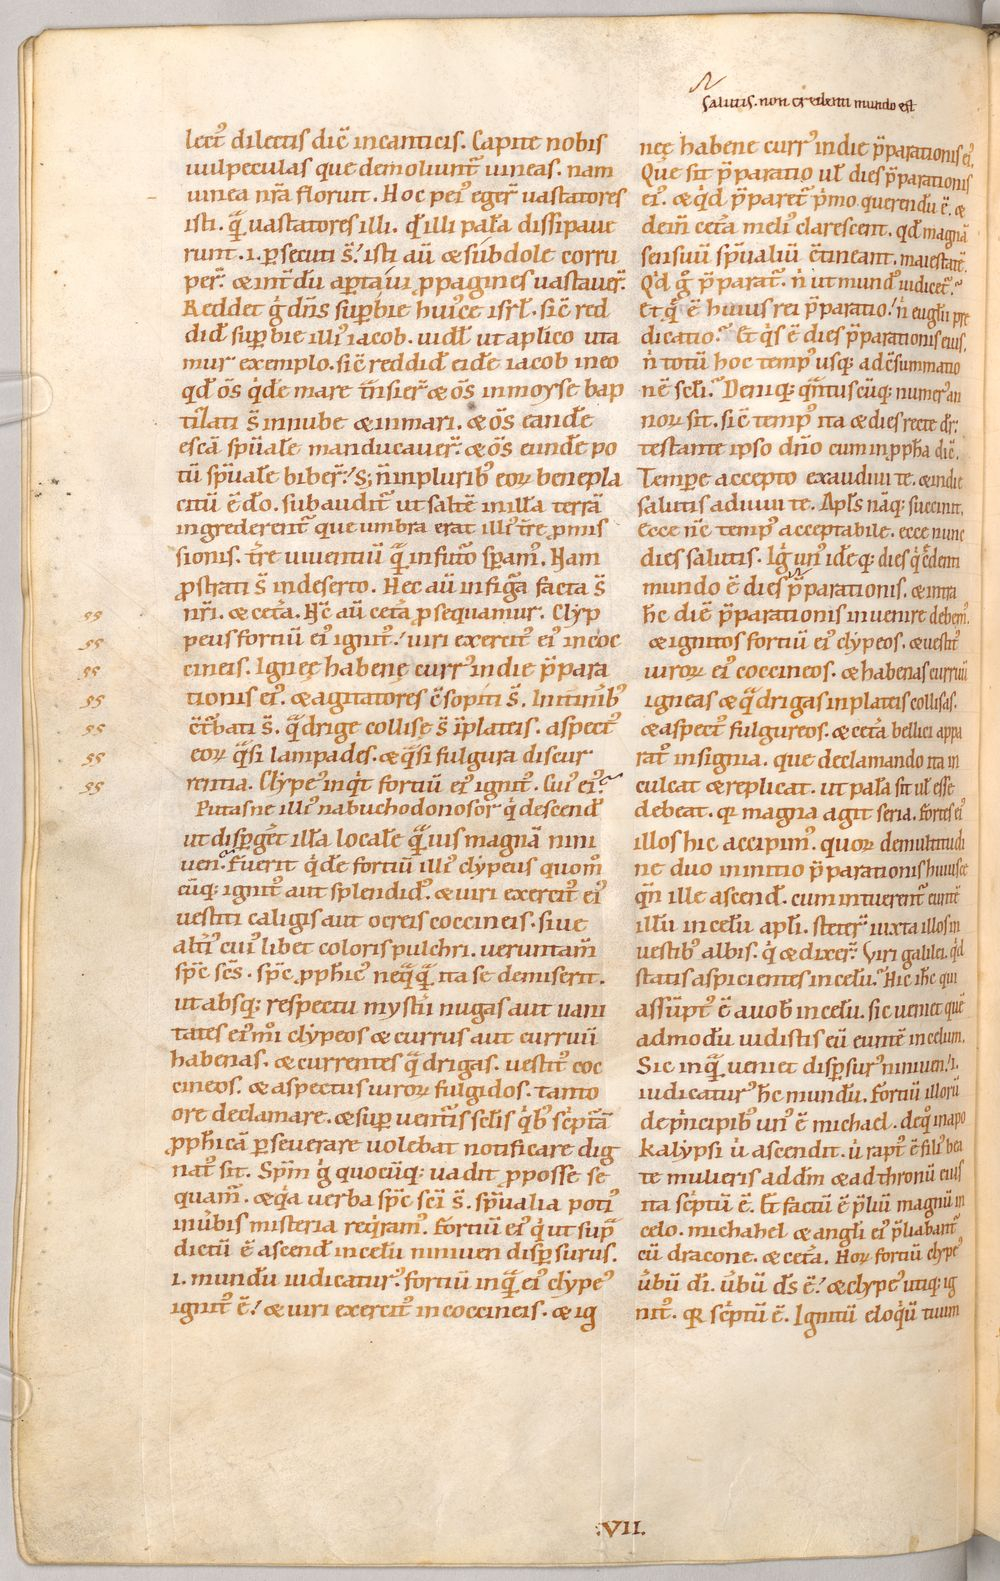 salutis. non credenti mundo est
lect᷒ dilectis dic̄ incanticis. Capite nobis
uulpeculas que demoliunt᷒ uineas. nam
uinea nr̄a floruit. Hoc pei᷒ eger᷒ uastatores
isti. q̄ uastatores illi. qd̄ illi pala dissipaue
runt. i. ꝑsecuti s̄. isti aū & subdole corru
per᷒. & int̄dū apta ui ꝓpagines uastauer᷒.
Reddet g̊ dn̄s suꝑbie huic̄e isrl̄. sic̄ red
did̄ suꝑbie illi᷒ iacob. uidl̄ ut aplico uta
mur exemplo. sic̄ reddid̄ eidē iacob in eo
qd̄ os̄ q̇dē mare tn̄sier᷒ & os̄ inmoyse bap
tilati s̄ innube & inmari. & os̄ eandē
escā spūalē manducauer᷒. & os̄ eundē po
tū spūalē biber᷒. S; n̄ inplurib᷒ eoꝝ benepla
citū ē dō. subaudit᷒ ut saltē inilla terrā
ingrederent᷒ que umbra erat illi᷒ tr̄e ꝓmis
sionis. tr̄e uiuentiū q̄ infuto spam᷒. Nam
ꝓstrati s̄ indeserto. Hec aū in figa facta s̄
nr̄i. & cet̄a. Hc̄ aū cet̄a ꝓsequamur. Clyp
peus fortiū ei᷒ ignit᷒. uiri exercit᷒ ei᷒ in coc
cineis. Ignee habene curr᷒ indie p̄para
tionis ei᷒. & agitatores c̄sopiti s̄. Initinib᷒
c̄t᷒bati s̄. q̄drige collise s̄ īplateis. aspect᷒
eoꝝ q̄si lampades. & q̄si fulgura discur
rentia. Clype᷒ inq̇t fortiū ei᷒ ignit᷒. Cui᷒ ei᷒.
Putasne illi᷒ nabuchodonosor q̇ descend̄
ut disꝑget illā localē q̄uis magnā nini
uen. Fuerit q̇dē fortiū illi᷒ clypeus quom̄
cūq; ignit᷒ aut splendid᷒. & uiri exercit᷒ ei᷒
uestiti caligis aut ocreis coccineis. siue
alt̄i᷒ cui᷒libet coloris pulchri. ueruntam̄
spc̄ scs̄. spc̄ ꝓphic᷒ neq̄q̄ ita se demiserit.
ut absq; respectu mysterii nugas aut uani
tates ei᷒mi clypeos & currus aut curruū
habenas. & currentes q̄drigas. uestit᷒ coc
cineos. & aspectus uiroꝝ fulgidos. tanto
ore declamare. & suꝑuent̄is sclis q̇b᷒ sc̄ptā
ꝓphicā ꝑseuerare uolebat notificare dig
nat᷒ sit. Spm̄ g̊ quocūq; uadit ꝓ posse se
quam᷒. & q̇a uerba spc̄ sci s̄. spūalia poti᷒
inuerbis misteria req̇ram᷒. Fortiū ei᷒ q̇ ut sup̄
dictū ē ascend̄ in celū niniuen disꝑsurus.
i. mundū iudicatur᷒. fortiū inq̄ ei᷒ clype᷒
ignit᷒ ē. & uiri exercit᷒ in coccineis. & ig
nee habene curr᷒ indie p̄parationis ei᷒.
Que sit p̄paratio ul̄ dies p̄parationis
ei᷒. & q̇d p̄paret᷒ ṗmo. querendū ē. &
dem̄ cet̄a meli᷒ clarescent. qd̄ magnā
sensuū spūaliū c̄tineant. maiestatē.
Qd̄ g̊ p̄parat᷒. n̄ ut mund᷒ iudicet᷒.
Et q̄ ē huius rei p̄paratio. n̄ euglii pre
dicatio. Et q̇s ē dies p̄parationis eius.
n̄ totū hoc temp᷒ usq; ad c̄summatio
nē scl̄i. Deniq; q̄ntuscūq; numer᷒ an
noꝝ sit. sic̄ temp᷒ ita & dies recte dr̄.
testante ipso dn̄o cum in ꝓph̄a dic̄.
Tempe accepto exaudiui te. & indie
salutis adiuui te. Apls̄ nāq; succinit.
ecce nc̄ temp᷒ acceptabile. ecce nunc
dies salutis. Ig̊ un᷒ idēq; dies q̇ c̄denti
mundo ē dies p̄parationis. & intra
hc̄ diē p̄parationis inuenire debem᷒.
& ignitos fortiū ei᷒ clypeos. & uestit᷒
uiroꝝ ei᷒ coccineos. & habenas curruū
igneas & q̄drigas inplateis collisas.
& aspect᷒ fulgureos. & cet̄a bellici appa
rat᷒ insignia. que declamando ita in
culcat & replicat. ut pala sit ul̄ esse
debeat. qꝛ magna agit seria. Fortes ei᷒
illos hic accipim᷒. quoꝝ demultitudi
ne duo ininitio p̄parationis huiusce
qn̄ ille ascend̄. cum intuerent᷒ euntē
illū in celū apli. steter᷒ iuxta illos in
uestib᷒ albis. q̇ & dixer᷒. Viri galilei. q̇d
statis aspicientes in celū. Hic ihc̄ qui
assūpt᷒ ē a uob̄ in celū. sic ueniet quē
admodū uidistis eū euntē in celum.
Sic inq̄ ueniet disꝑsur᷒ niniuen. i.
iudicatur᷒ hc̄ mundū. Fortiū illorū
de pi̇ncipib᷒ un᷒ ē michael. deq̊ in apo
kalypsi u̇ ascendit. u̇ rapt᷒ ē fili᷒ bea
te mulieris addm̄ & ad thronū eius
ita sc̄ptū ē. Et factū ē p̄liū magnū in
celo. michahel & angli ei᷒ p̄liabant᷒
cū dracone. & cet̄a. Hoꝝ fortiū clype᷒
ūbū di. ūbū ds̄ ē. & clype᷒ utiq; ig
nit᷒. qꝛ sc̄ptū ē. Ignitū eloq̇ū tuum
:VII.